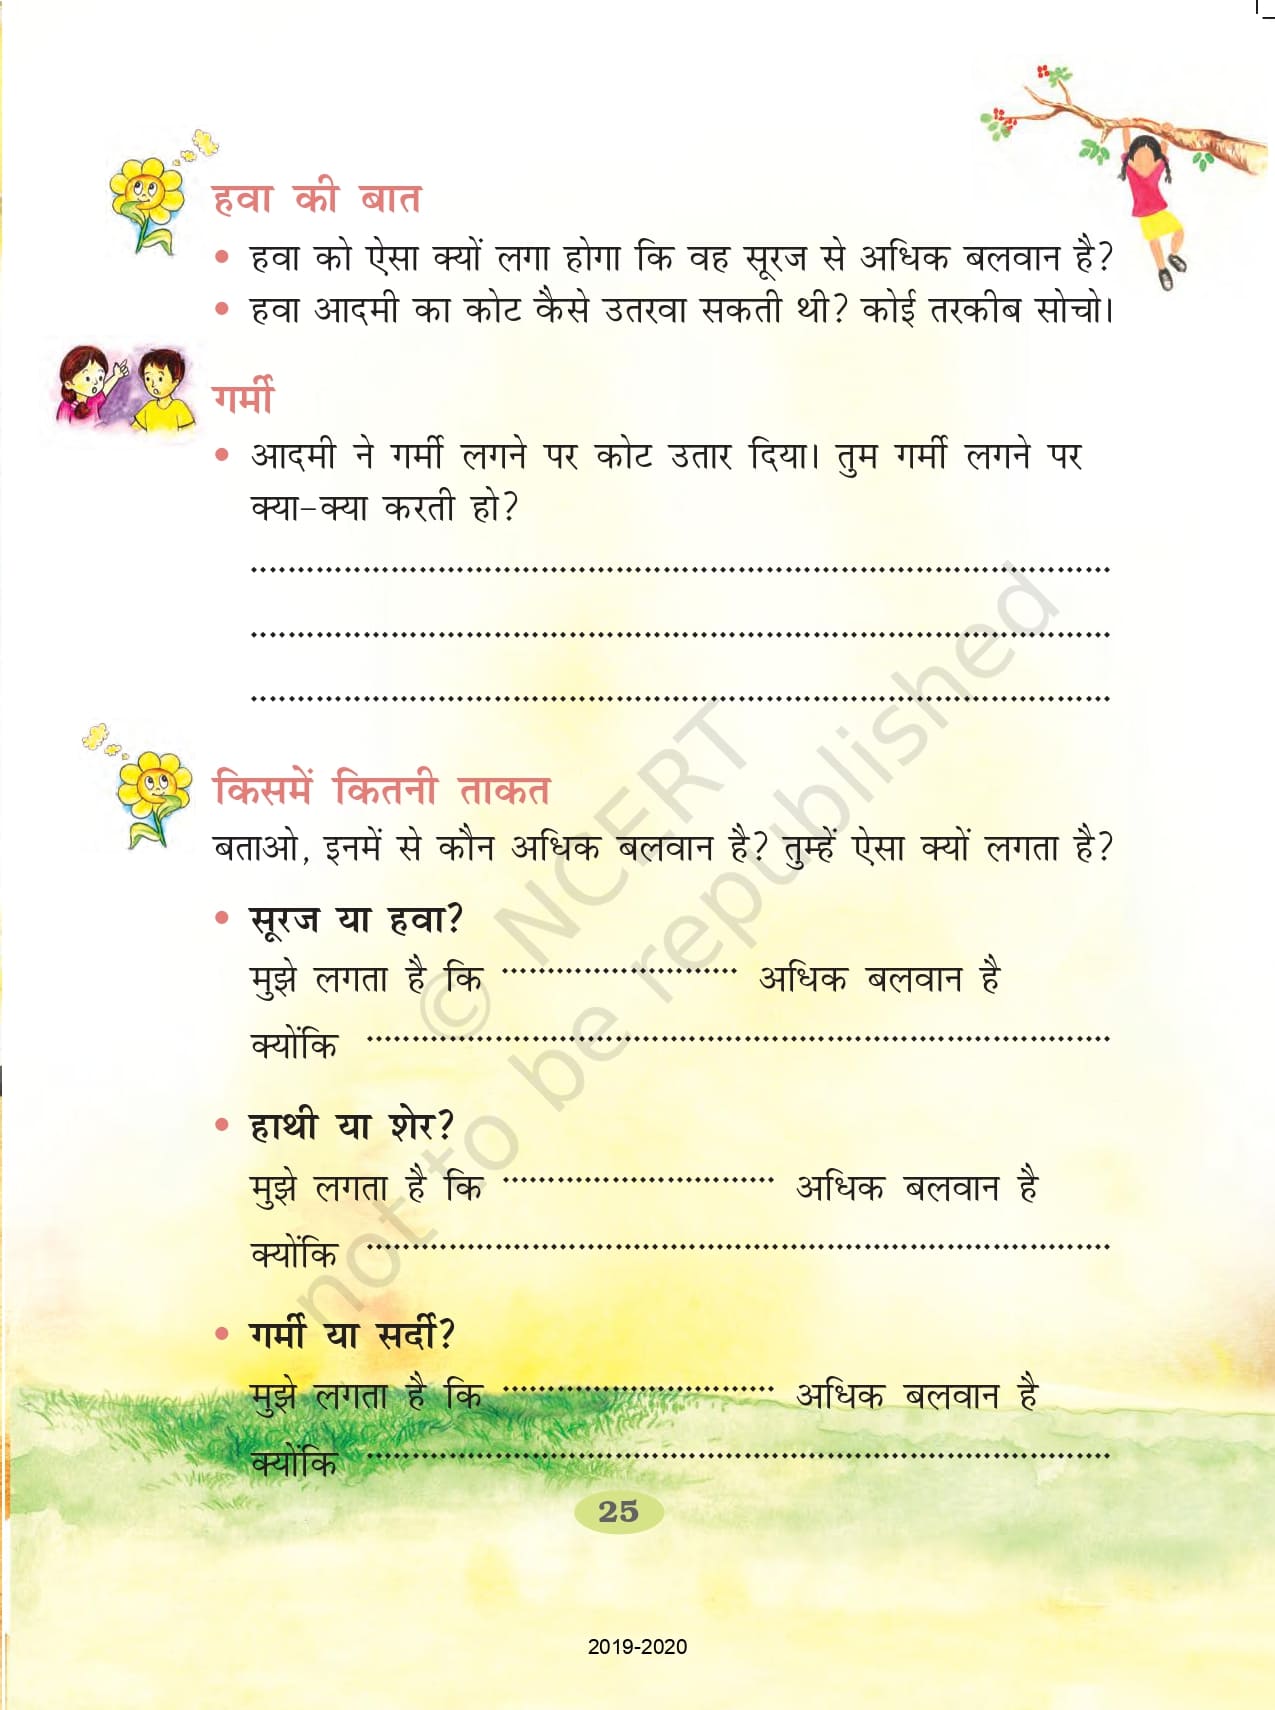 हवा की बात
• हवा को ऐसा क्यों लगा होगा कि वह सूरज से अधिक बलवान है?
• हवा आदमी का कोट कैसे उतरवा सकती थी? कोई तरकीब सोचो।
गर्मी
• आदमी ने गर्मी लगने पर कोट उतार दिया। तुम गर्मी लगने पर
क्या-क्या करती हो?
किसमें कितनी ताकत
बताओ, इनमें से कौन अधिक बलवान है? तुम्हें ऐसा क्यों लगता है?
• सूरज या हवा?
मुझे लगता है कि ........................... अधिक बलवान है
क्योंकि ...........................
• हाथी या शेर?
मुझे लगता है कि ........................... अधिक बलवान है
क्योंकि ...........................
• गर्मी या सर्दी?
मुझे लगता है कि ........................... अधिक बलवान है
क्योंकि ...........................
25
2019-2020
© NCERT
not to be republished